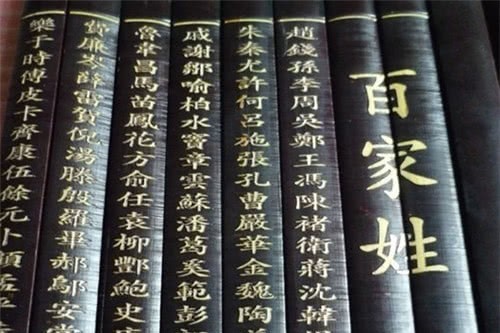 百家姓
趙錢孫李周吳鄭王馮陳褚衛蔣沈韓
朱秦尤許何呂施張孔曹嚴華金魏陶
戚謝鄒喻柏水竇章雲蘇潘葛奚範彭
魯韋昌馬苗鳳花方俞任袁柳酆鮑史
費廉岑薛雷賀倪湯滕殷羅畢郝鄔安常
樂于時傅皮卡齊康伍餘元卜顧孟平